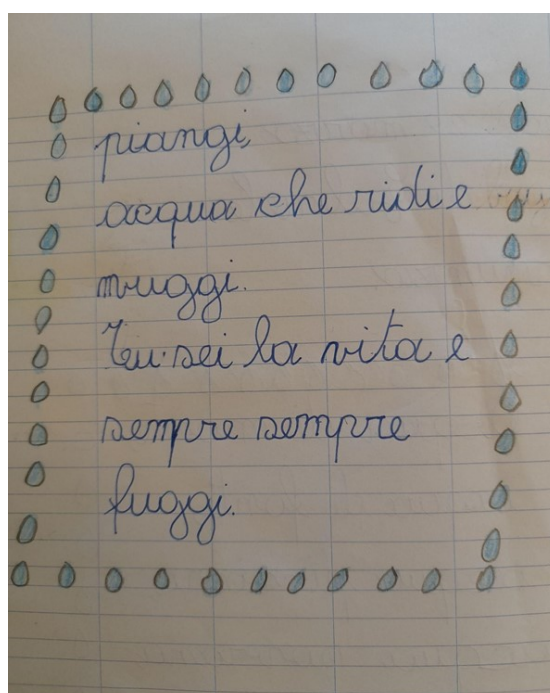 piangi,
acqua che ridi e
muggi.
Tu sei la vita e
sempre sempre
fuggi.